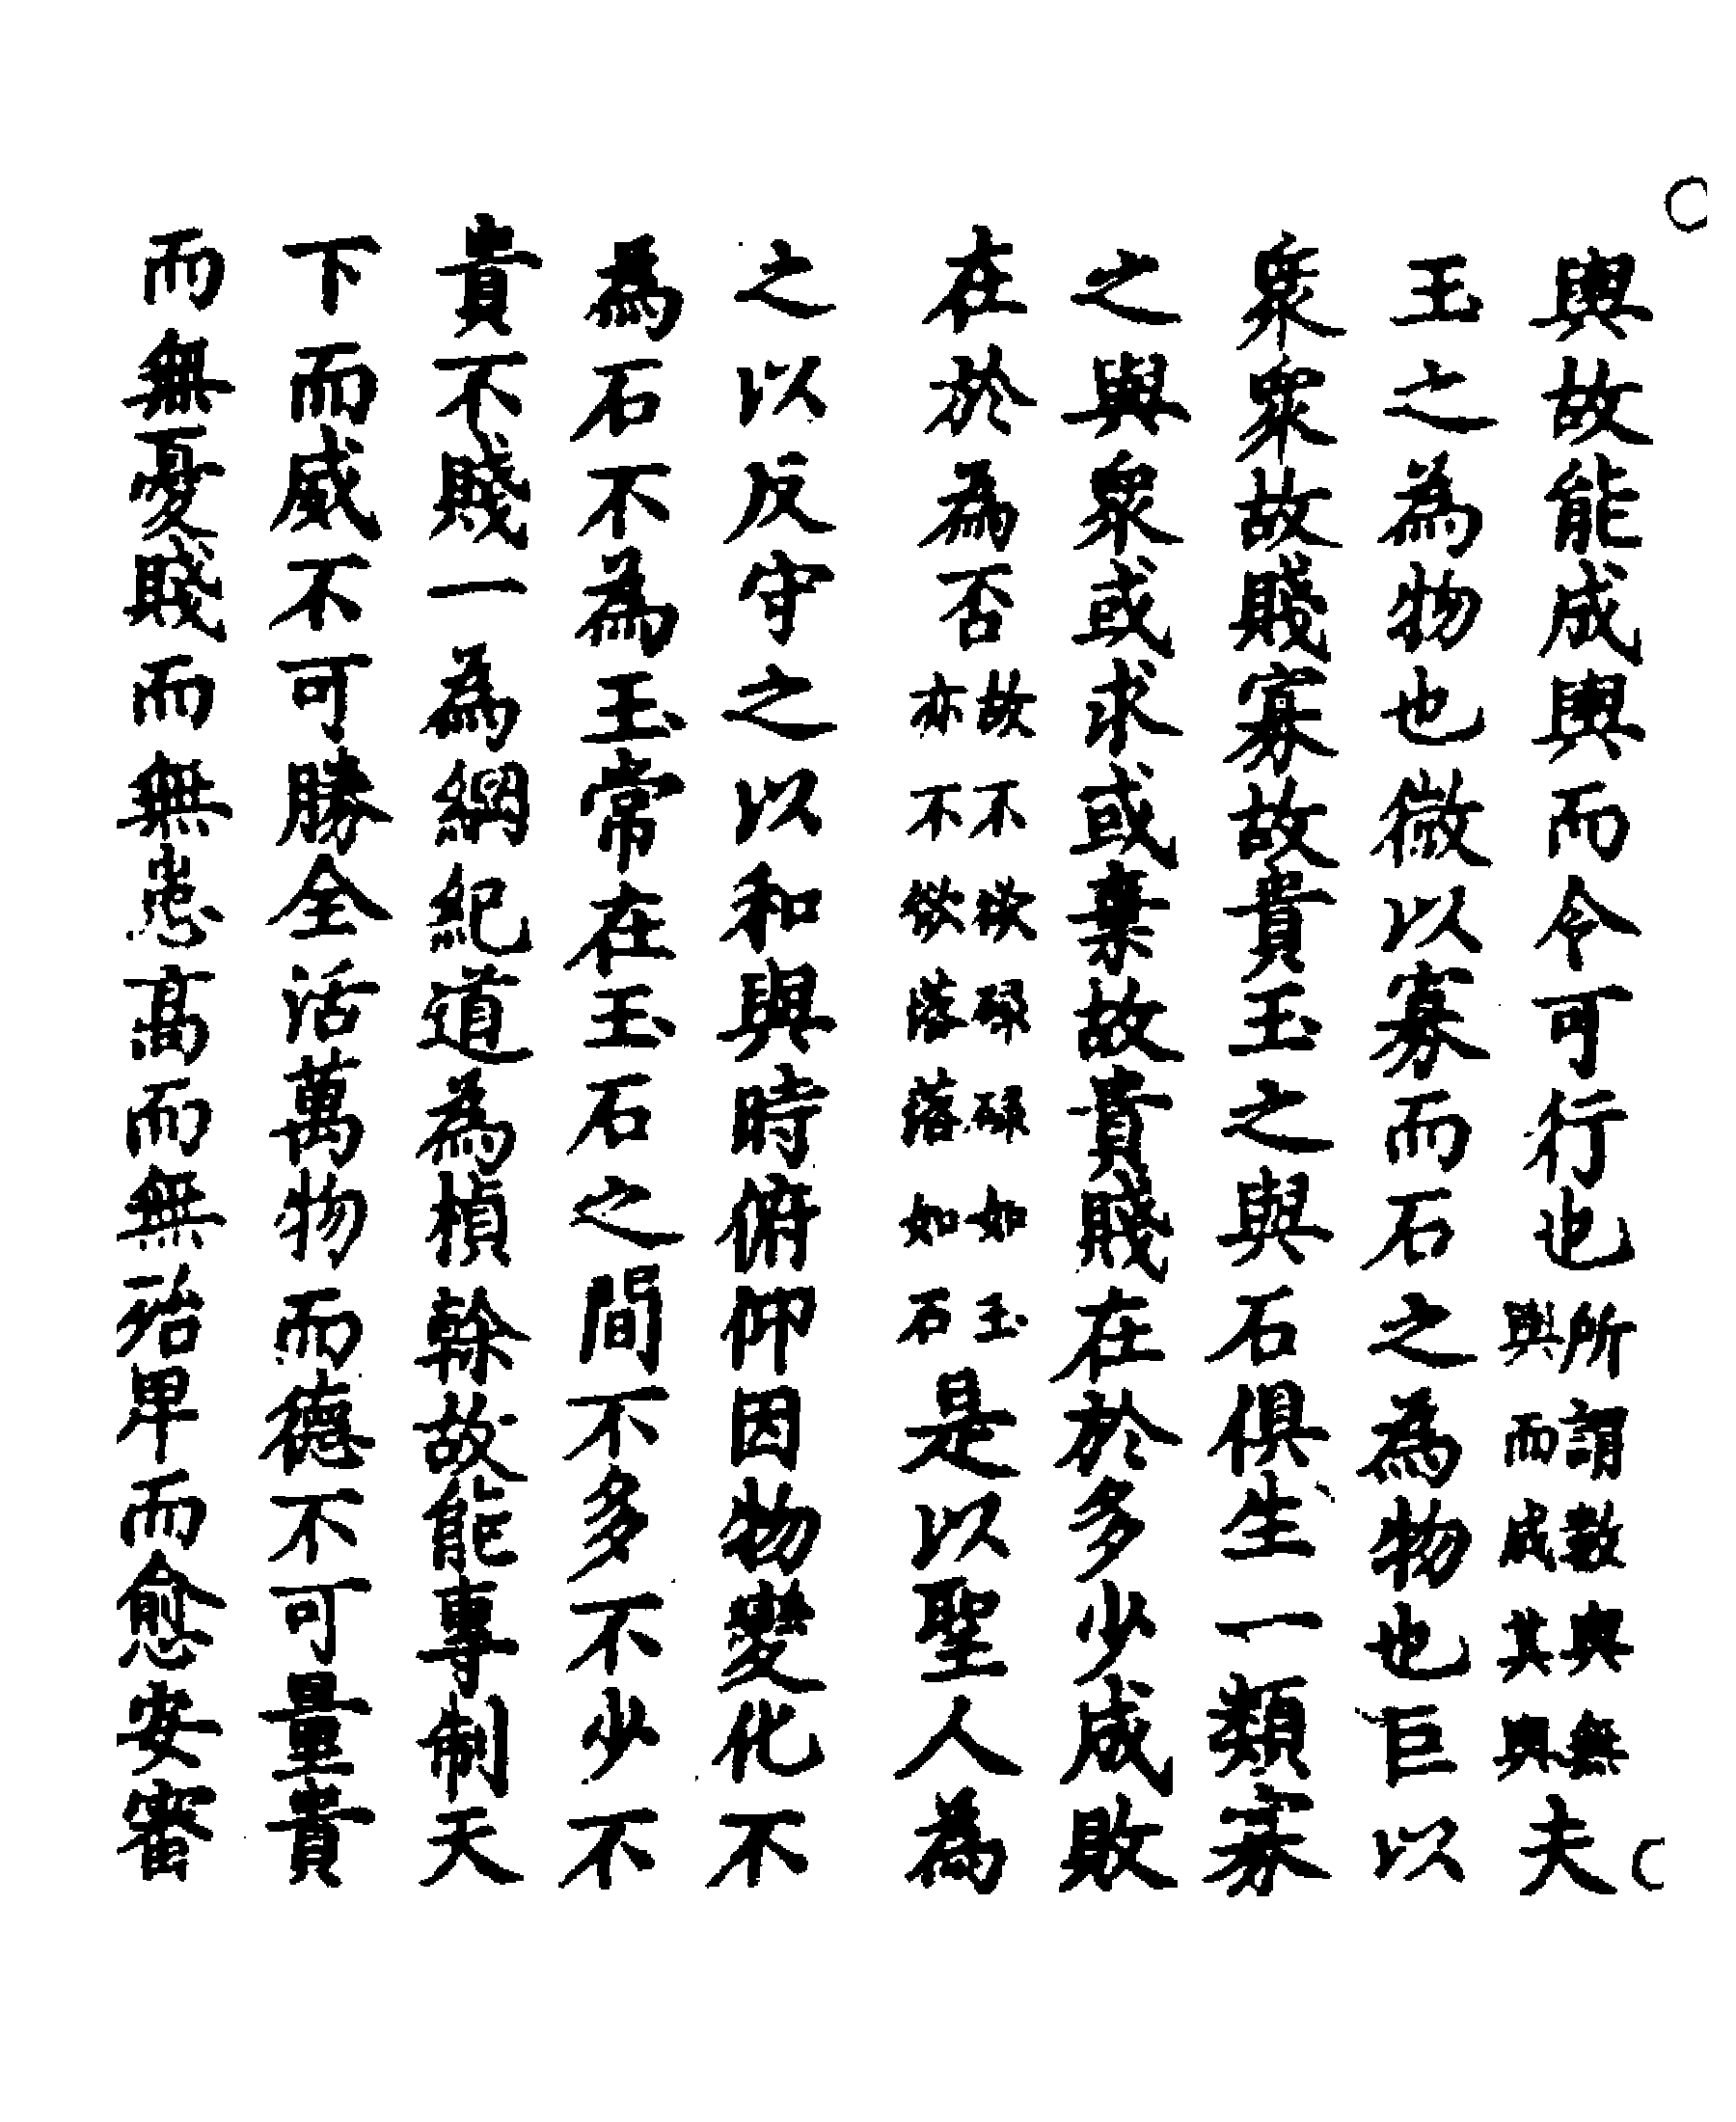 輿故能成輿而令可行也所謂數輿無輿而成其輿夫
玉之為物也微以寡而石之為物也巨以
衆衆故賤寡故貴玉之與石俱生一類寡
之與衆或求或棄故貴賤在於多少成敗
在於為否故不欲碌碌如玉亦不欲落落如石是以聖人為
之以反守之以和與時俯仰因物變化不
為石不為玉常在玉石之間不多不少不
貴不賤一為綱紀道為楨榦故能專制天
下而威不可勝全活萬物而德不可量貴
而無憂賤而無患高而無殆卑而愈安審